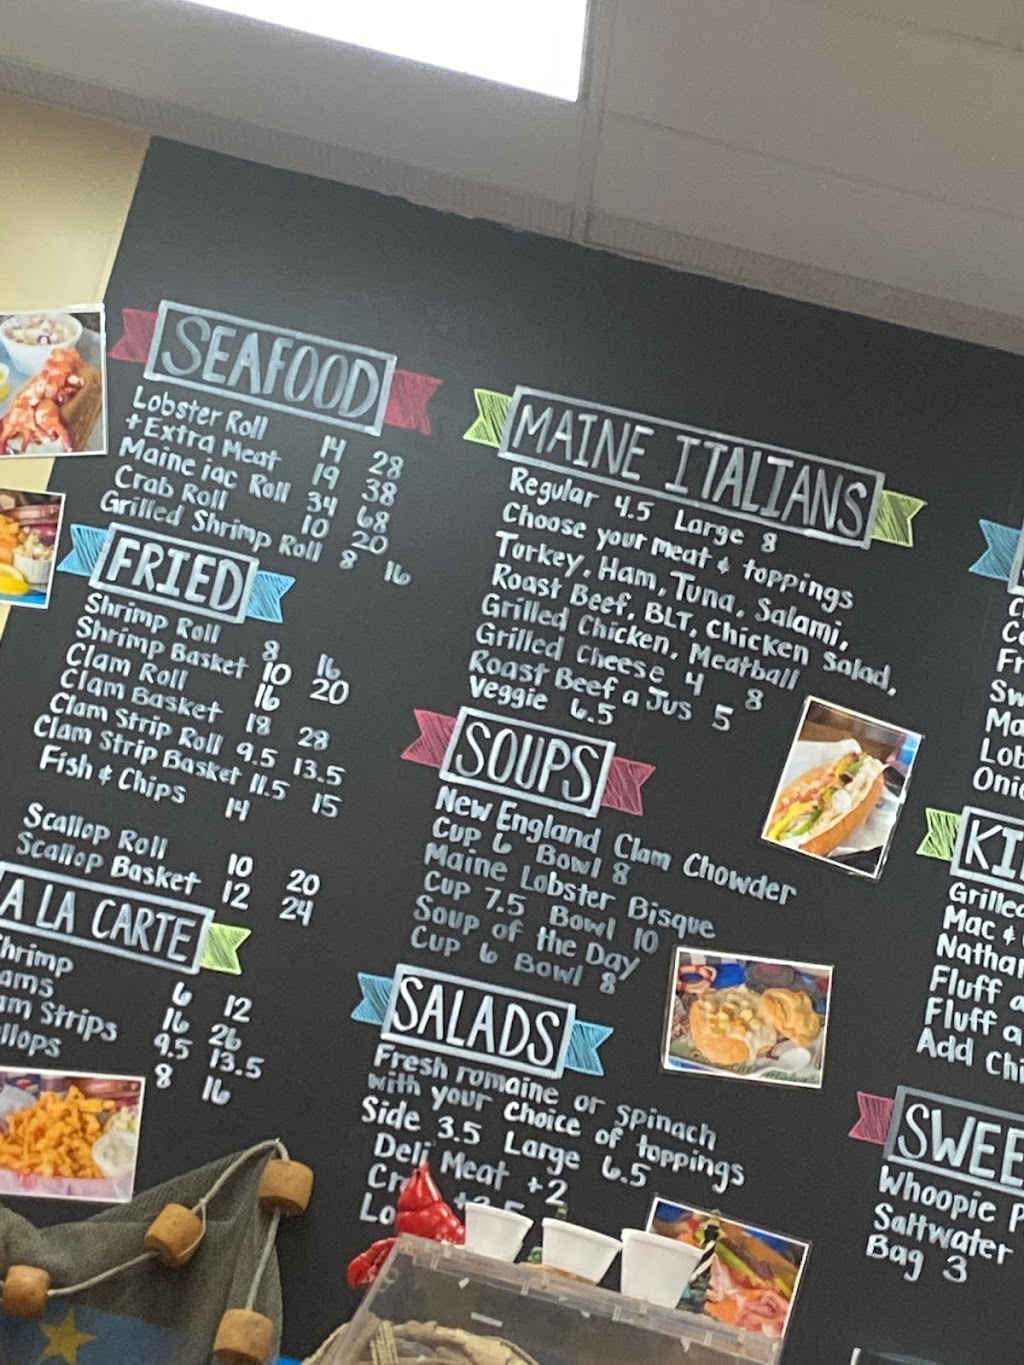 SEAFOOD
Lobster Roll 14 28
+ Extra Meat 19 38
Maine iac Roll 34 68
Crab Roll 10 20
Grilled Shrimp Roll 8 16
FRIED
Shrimp Roll 8 16
Shrimp Basket 10 20
Clam Roll 16
Clam Basket 18 28
Clam Strip Roll 9.5 13.5
Clam Strip Basket 11.5 15
Fish & Chips 14
Scallop Roll 10 20
Scallop Basket 12 24
A LA CARTE
hrimp 6 12
ams 16 26
am Strips 9.5 13.5
llops 8 16
MAINE ITALIANS
Regular 4.5 Large 8
Choose your meat & toppings
Turkey, Ham, Tuna, Salami,
Roast Beef, BLT, Chicken Salad,
Grilled Chicken, Meatball
Grilled Cheese 4 8
Roast Beef a Jus 5
Veggie 6.5
SOUPS
New England Clam Chowder
Cup 6 Bowl 8
Maine Lobster Bisque
Cup 7.5 Bowl 10
Soup of the Day
Cup 6 Bowl 8
SALADS
Fresh romaine or spinach
with your choice of toppings
Side 3.5 Large 6.5
Deli Meat +2
Cr
Lo
C
Fr
Sw
Ma
Lob
Onio
KI
Grilled
Mac &
Nathan
Fluff a
Fluff a
Add Chi
SWEE
Whoopie P
Saltwater
Bag 3